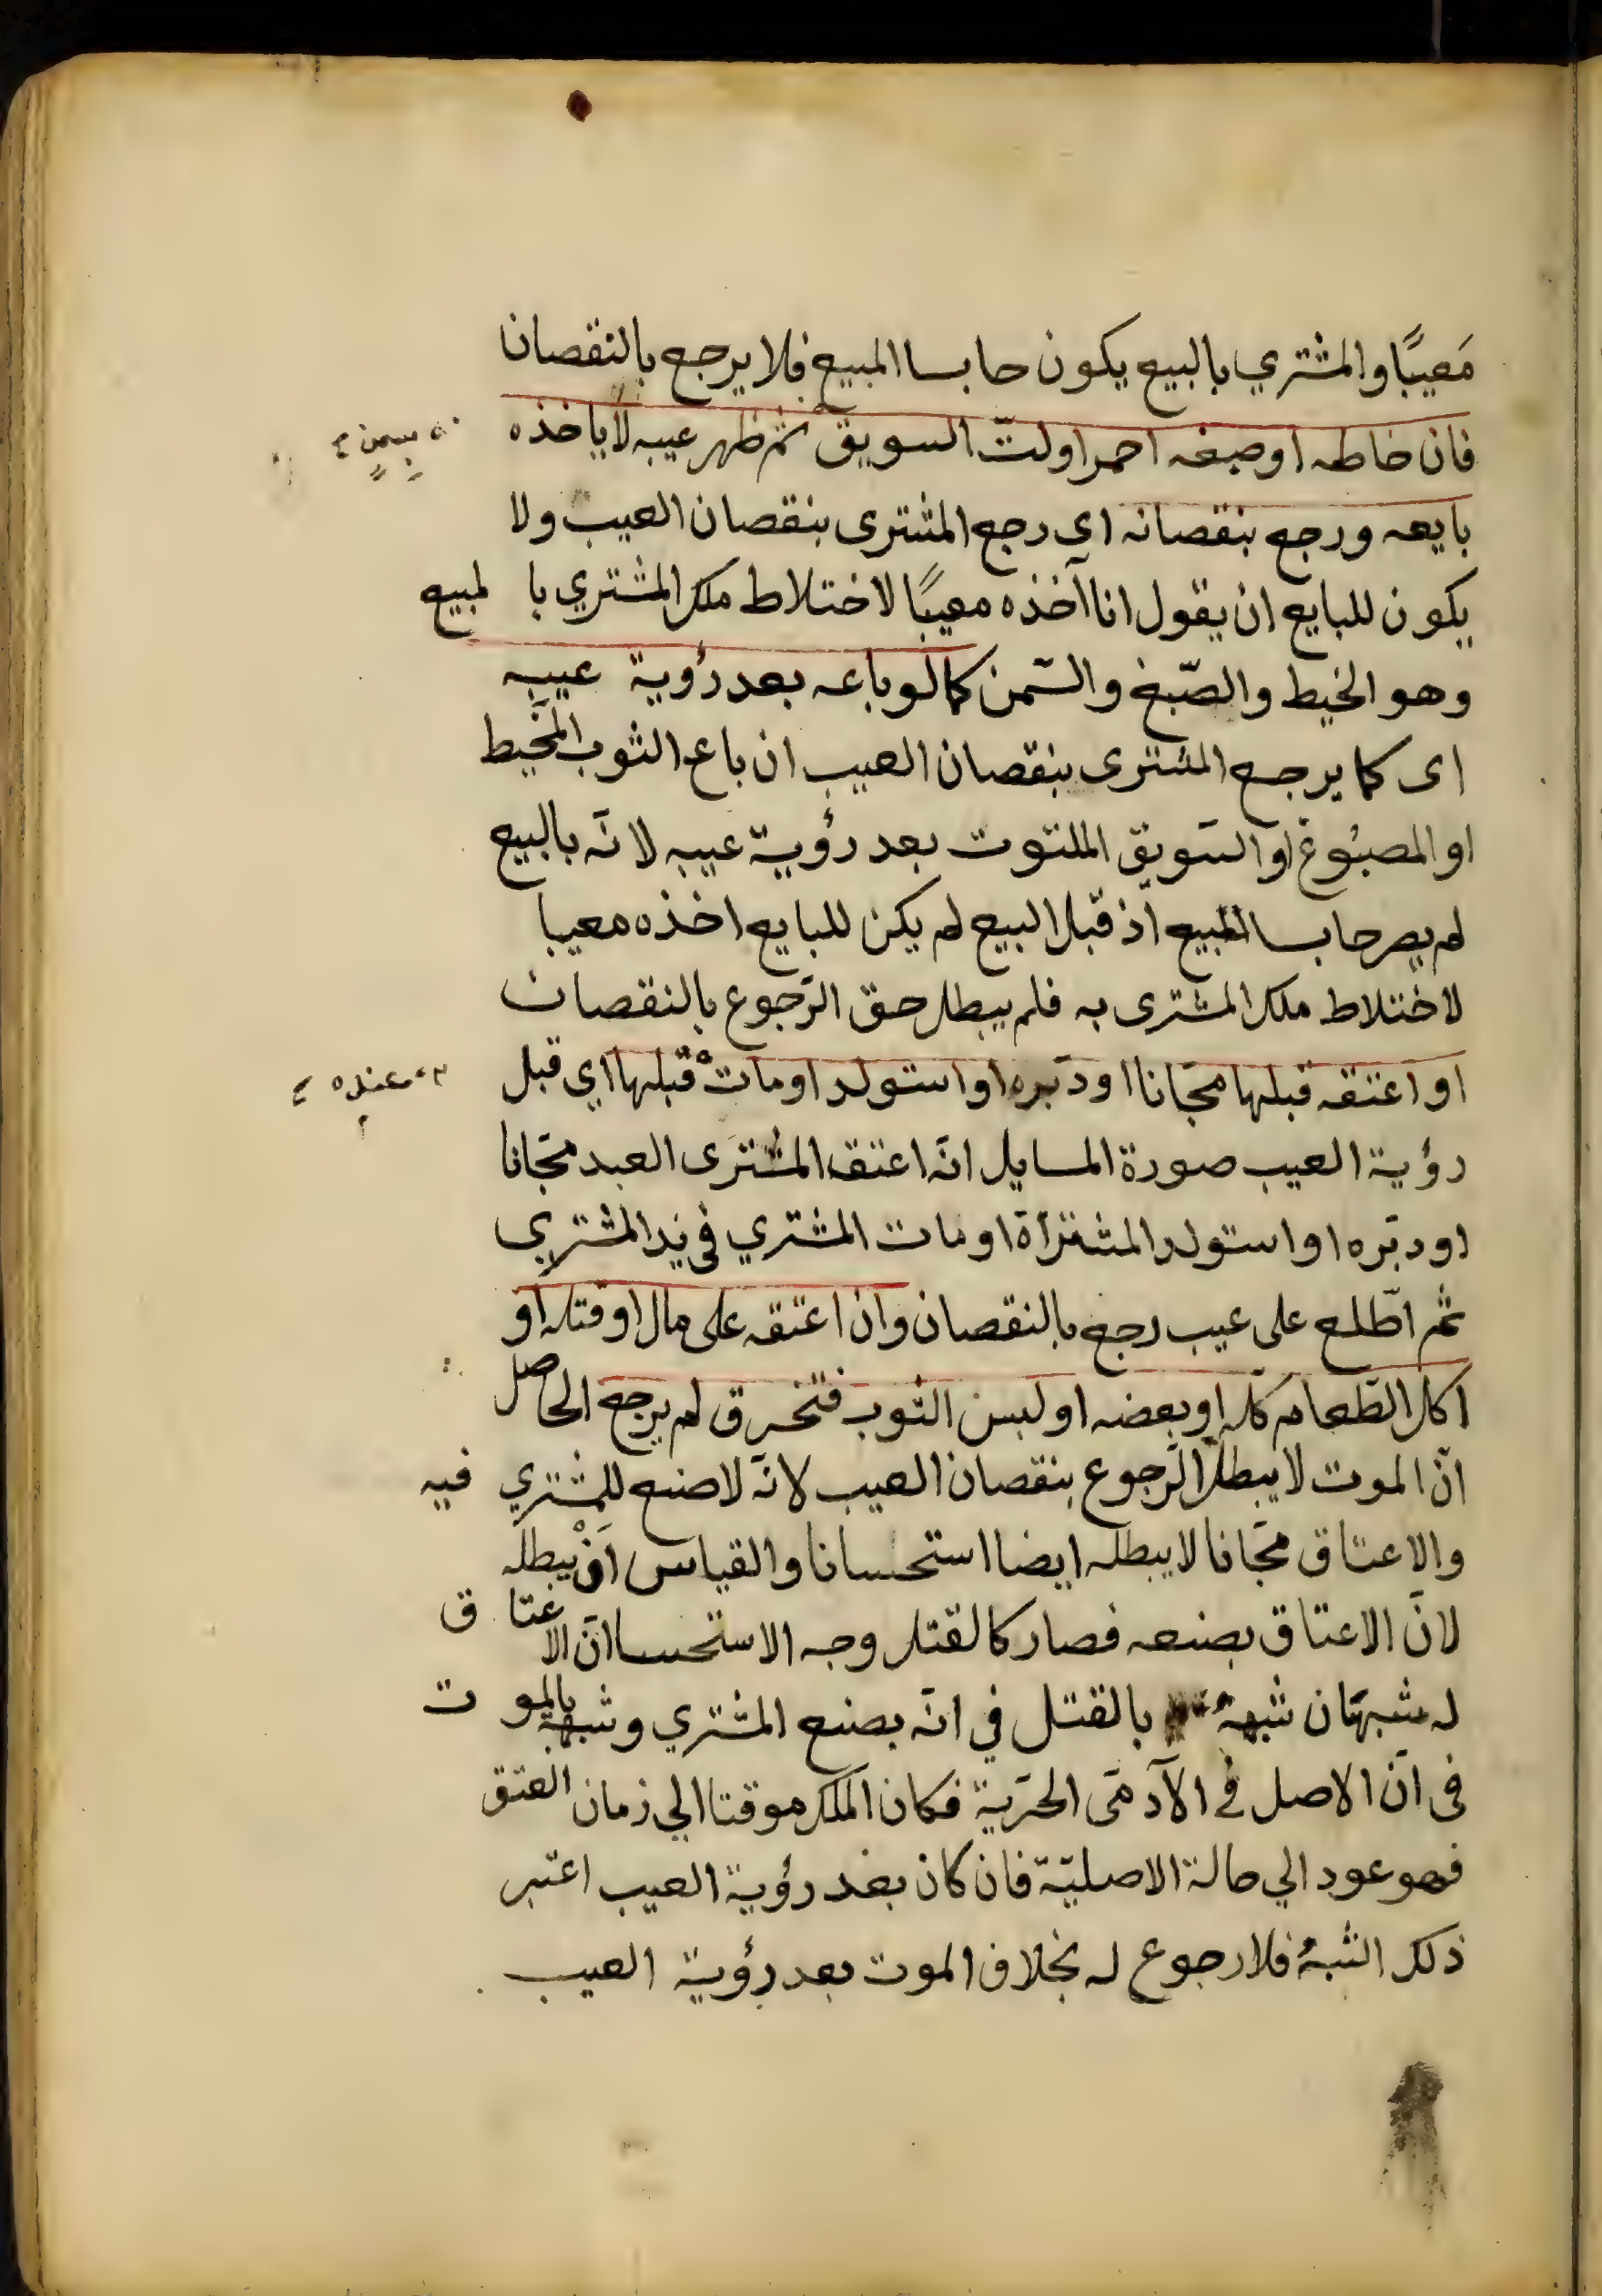 مَعيبًا والمشتري بالبيع يكون حابسا المبيع فلا يرجع بالنقصان
فان خاطه او صبغه احمر او لتّ السويق ثم ظهر عيبه لا ياخذه
بسمن
بايعه ورجع بنقصانه اى رجع المشترى بنقصان العيب ولا
يكون للبايع ان يقول انا آخذه معيبًا لاختلاط ملك المشتري بالمبيع
وهو الخيط والصّبغ والسّمن كما لو باعه بعد رؤية عيبه
اى كما يرجع المشترى بنقصان العيب ان باع الثوب المخيط
او المصبوغ او السّويق الملتوت بعد رؤية عيبه لانّه بالبيع
لم يصر حابسا المبيع اذ قبل البيع لم يكن للبايع اخذه معيبا
لاختلاط ملك المشترى به فلم يبطل حق الرّجوع بالنقصان
او اعتقه قبلها مجّانا او دبّره او استولد او مات قبلها اي قبل
عنده
رؤية العيب صورة المسايل انّه اعتق المشترى العبد مجّانا
او دبّره او استولد المشتراة او مات المشتري في يد المشتري
ثم اطّلع على عيب رجع بالنقصان وان اعتقه على مال او قتله او
اكل الطّعام كلّه او بعضه او لبس الثوب فتخرق لم يرجع الحاصل
انّ الموت لا يبطل الرّجوع بنقصان العيب لانّه لا صنع للمشتري فيه
والاعتاق مجّانا لا يبطله ايضا استحسانا والقياس انْ يبطله
لانّ الاعتاق بصنعه فصار كالقتل وجه الاستحسا انّ الاعتاق
له شبهان شبهٌ بالقتل في انّه بصنع المشتري وشبهٌ بالموت
فى انّ الاصل في الآدمّى الحرّية فكان الملك موقتا الي زمان العتق
فهو عود الي حالة الاصليّة فان كان بعد رؤية العيب اعتبر
ذلك الشبهُ فلا رجوع له بخلاف الموت بعد رؤية العيب